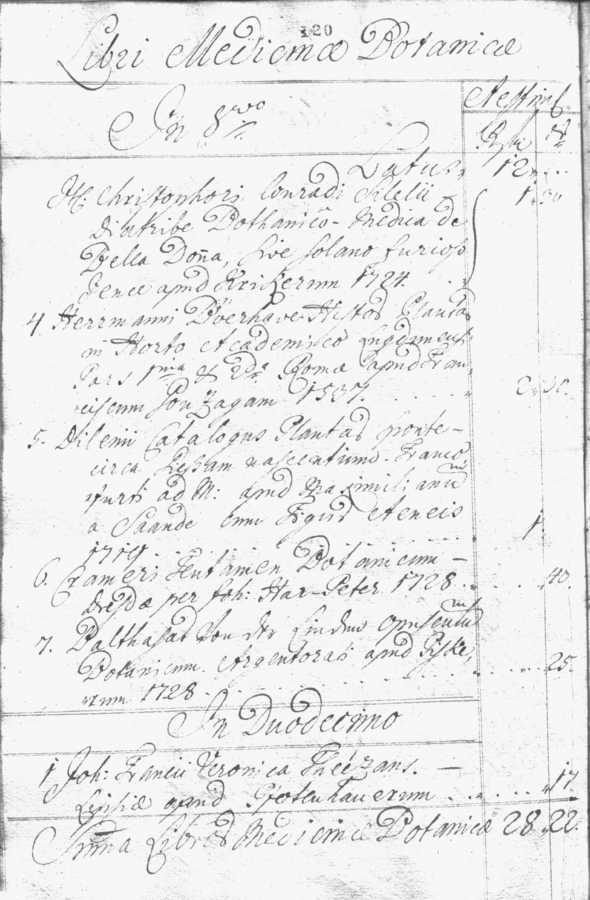 120
Libri Medicinæ Botanicæ
Æstim
In 8vo
Latus 12
M: Christophori Conradi Silelii 1 30
diatribe Bothanico-Medica de
Bella Dona, sive solano furioso
Jenæ apud Krikerum 1724.
4. Herrmanni Boerhave Histor Planta
in Horto Academico Lugdunens
Pars 1ma & 2da Romæ apud Fran
ciscum Gonzagam 1537. 2 30.
5. Dilenii Catalogus Plantar ponte-
circa Gissam nascentium. Franco
furti ad M: apud Maximilianum
a Saande cum figur Aeneis
1719. 1.
6. Crameri Tentamen Botanicum -
Dresdæ per Joh: Har-Peter 1728. 40.
7. Balthasar von der Linden Opusculum
Botanicum. Argentorati apud Piske,
rum 1728. 25.
In Duodecimo
1 Joh: Francii Veronica Theezans. -
Lipsiæ apud Pfotenhauerum 17.
Summa Libror Medicinæ Botanicæ 28. 22.